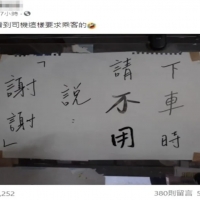 7小時
到司機這樣要求乘客的🤣
下車時
請不用
說：
「謝謝」
,252
380則留言